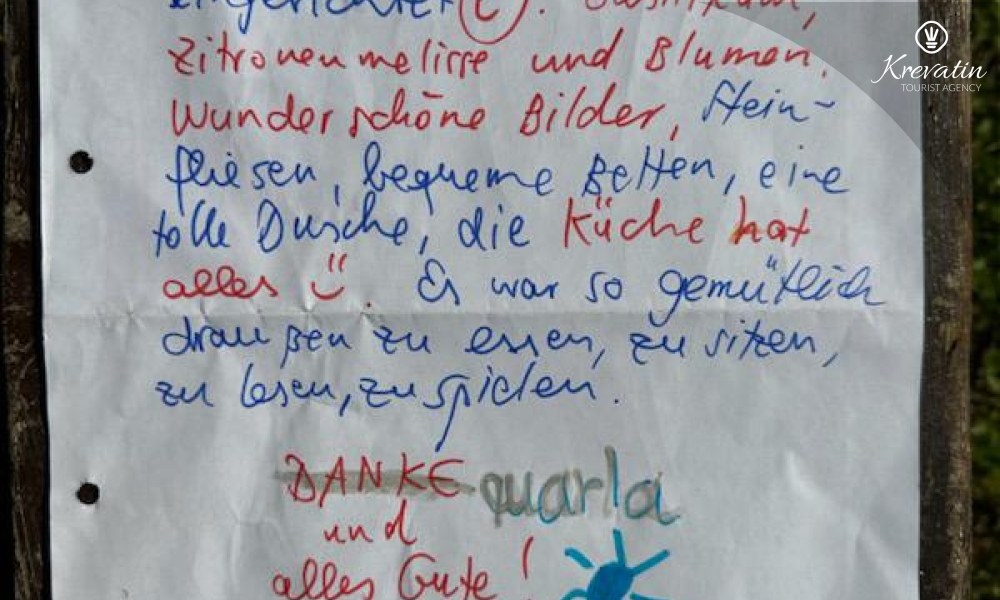 Zitronenmelisse und Blumen.
Wunderschöne Bilder, Stein-
fliesen, bequeme Betten, eine
tolle Dusche, die Küche hat
alles ü. Es war so gemütlich
draußen zu essen, zu sitzen,
zu lesen, zu spielen.
DANKE quarla
und
alles Gute!
Krevatin
TOURIST AGENCY